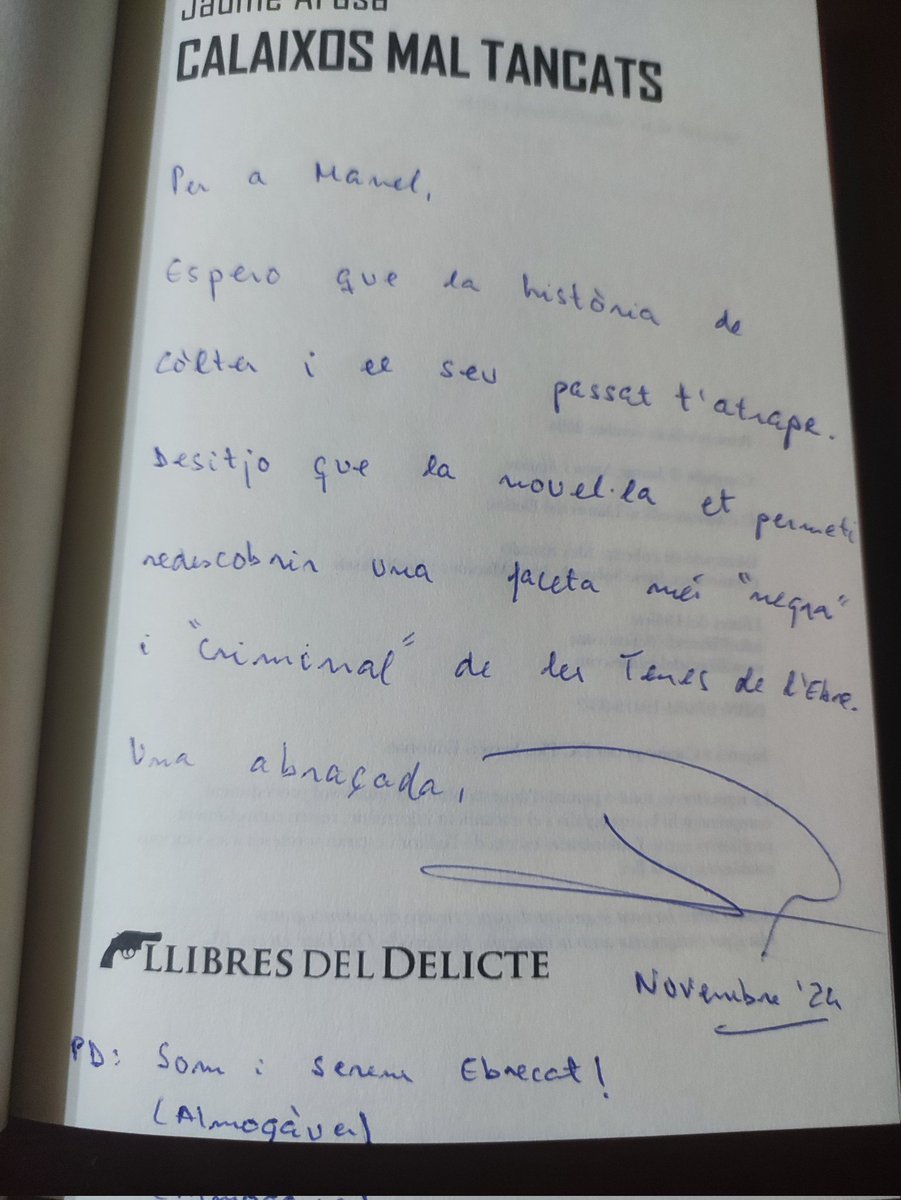 Jaume Arasa
CALAIXOS MAL TANCATS
Per a Manel,
Espero que la història de
Còlter i el seu passat t'atrape.
Desitjo que la novel·la et permeti
redescobrir una faceta més "negra"
i "criminal" de les Terres de l'Ebre.
Una abraçada,
LLIBRES DEL DELICTE
Novembre '24
PD: Som i serem Ebrecat!
(Almogàver)